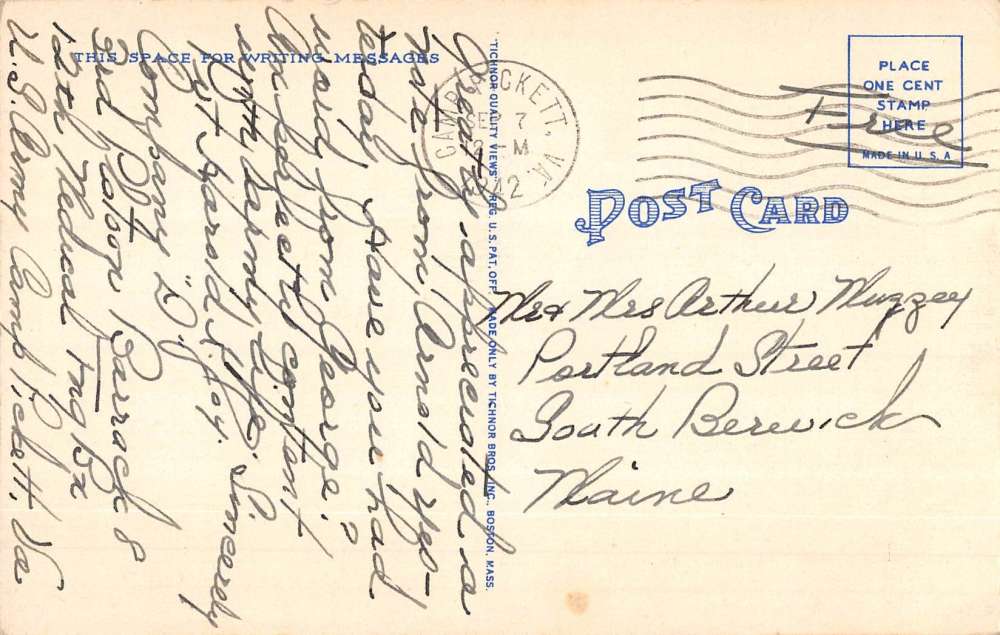 THIS SPACE FOR WRITING MESSAGES
Greatly appreciated a
note from Arnold yes-
teday. Have you had
word from George?
Am perfectly content
with army life.
Sincerely
Pvt Harold L. Foy.
Company "D",
3rd Platoon Barrack 8
12th Medical Trng Bn
U.S. Army Camp Pickett, Va
"TICHNOR QUALITY VIEWS" REG. U. S. PAT. OFF. MADE ONLY BY TICHNOR BROS. INC., BOSTON, MASS.
CAMP PICKETT, VA.
SEP 7
M
1942
PLACE
ONE CENT
STAMP
HERE
MADE IN U S A
Free
POST CARD
Mr & Mrs Arthur Muzzey
Portland Street
South Berwick
Maine